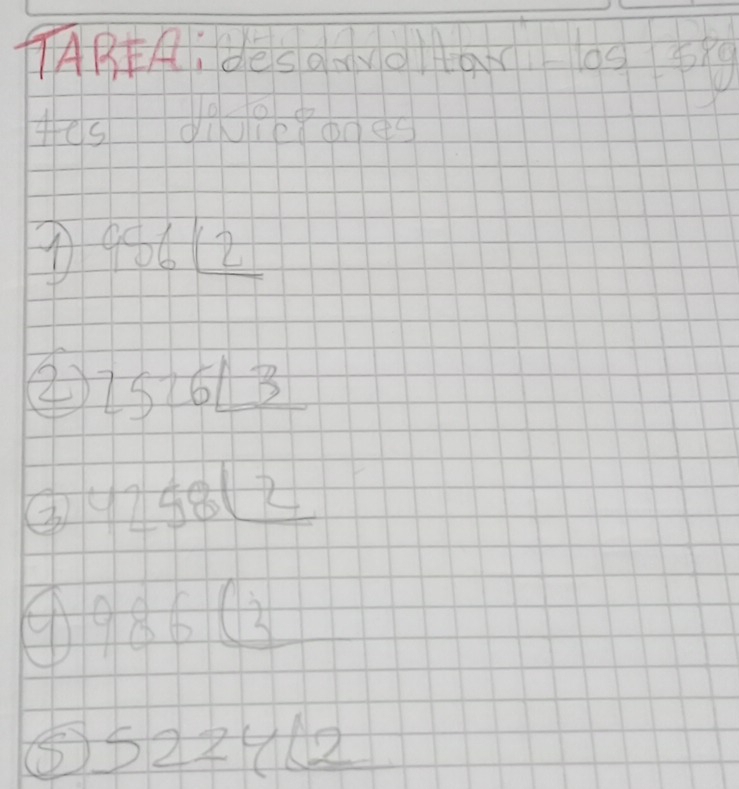 TAREA: desarrollar los sig
tes diviciones
1) 956 2
2) 2526 3
3) 4258 2
4) 986 3
5) 5224 2